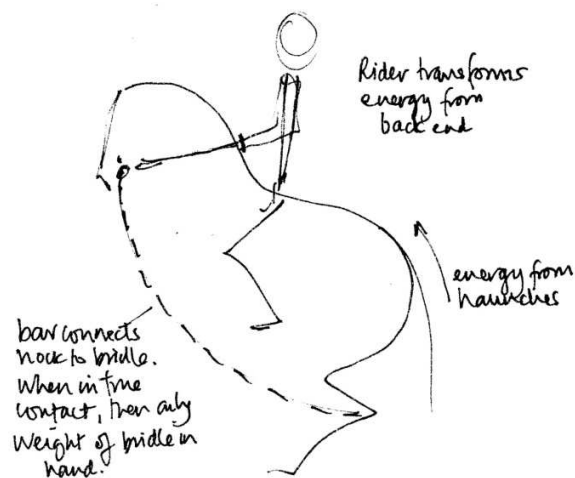 Rider transforms
energy from
back end
energy from
haunches
bar connects
hock to bridle.
When in true
contact, then only
weight of bridle in
hand.